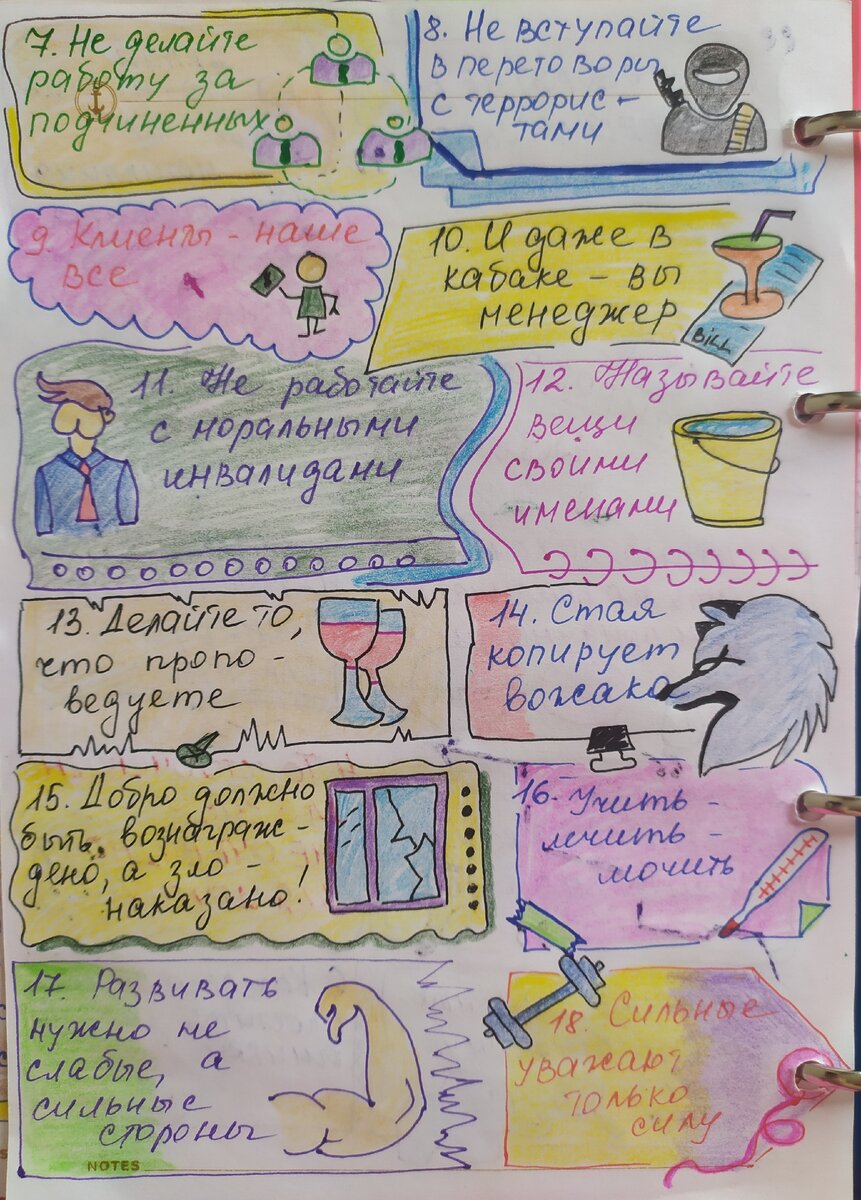 7. Не делайте
работу за
подчиненных
8. Не вступайте
в переговоры
с террорис -
тами
9. Клиенты - наше
все
10. И даже в
кабаке - вы
менеджер
BILL
11. Не работайте
с моральными
инвалидами
12. Называйте
вещи
своими
именами
13. Делайте то,
что пропо -
ведуете
14. Стая
копирует
вожака
15. Добро должно
быть вознаграж -
дено, а зло -
наказано!
16. Учить -
лечить -
мочить
17. Развивать
нужно не
слабые, а
сильные
стороны
18. Сильные
уважают
только
силу
NOTES